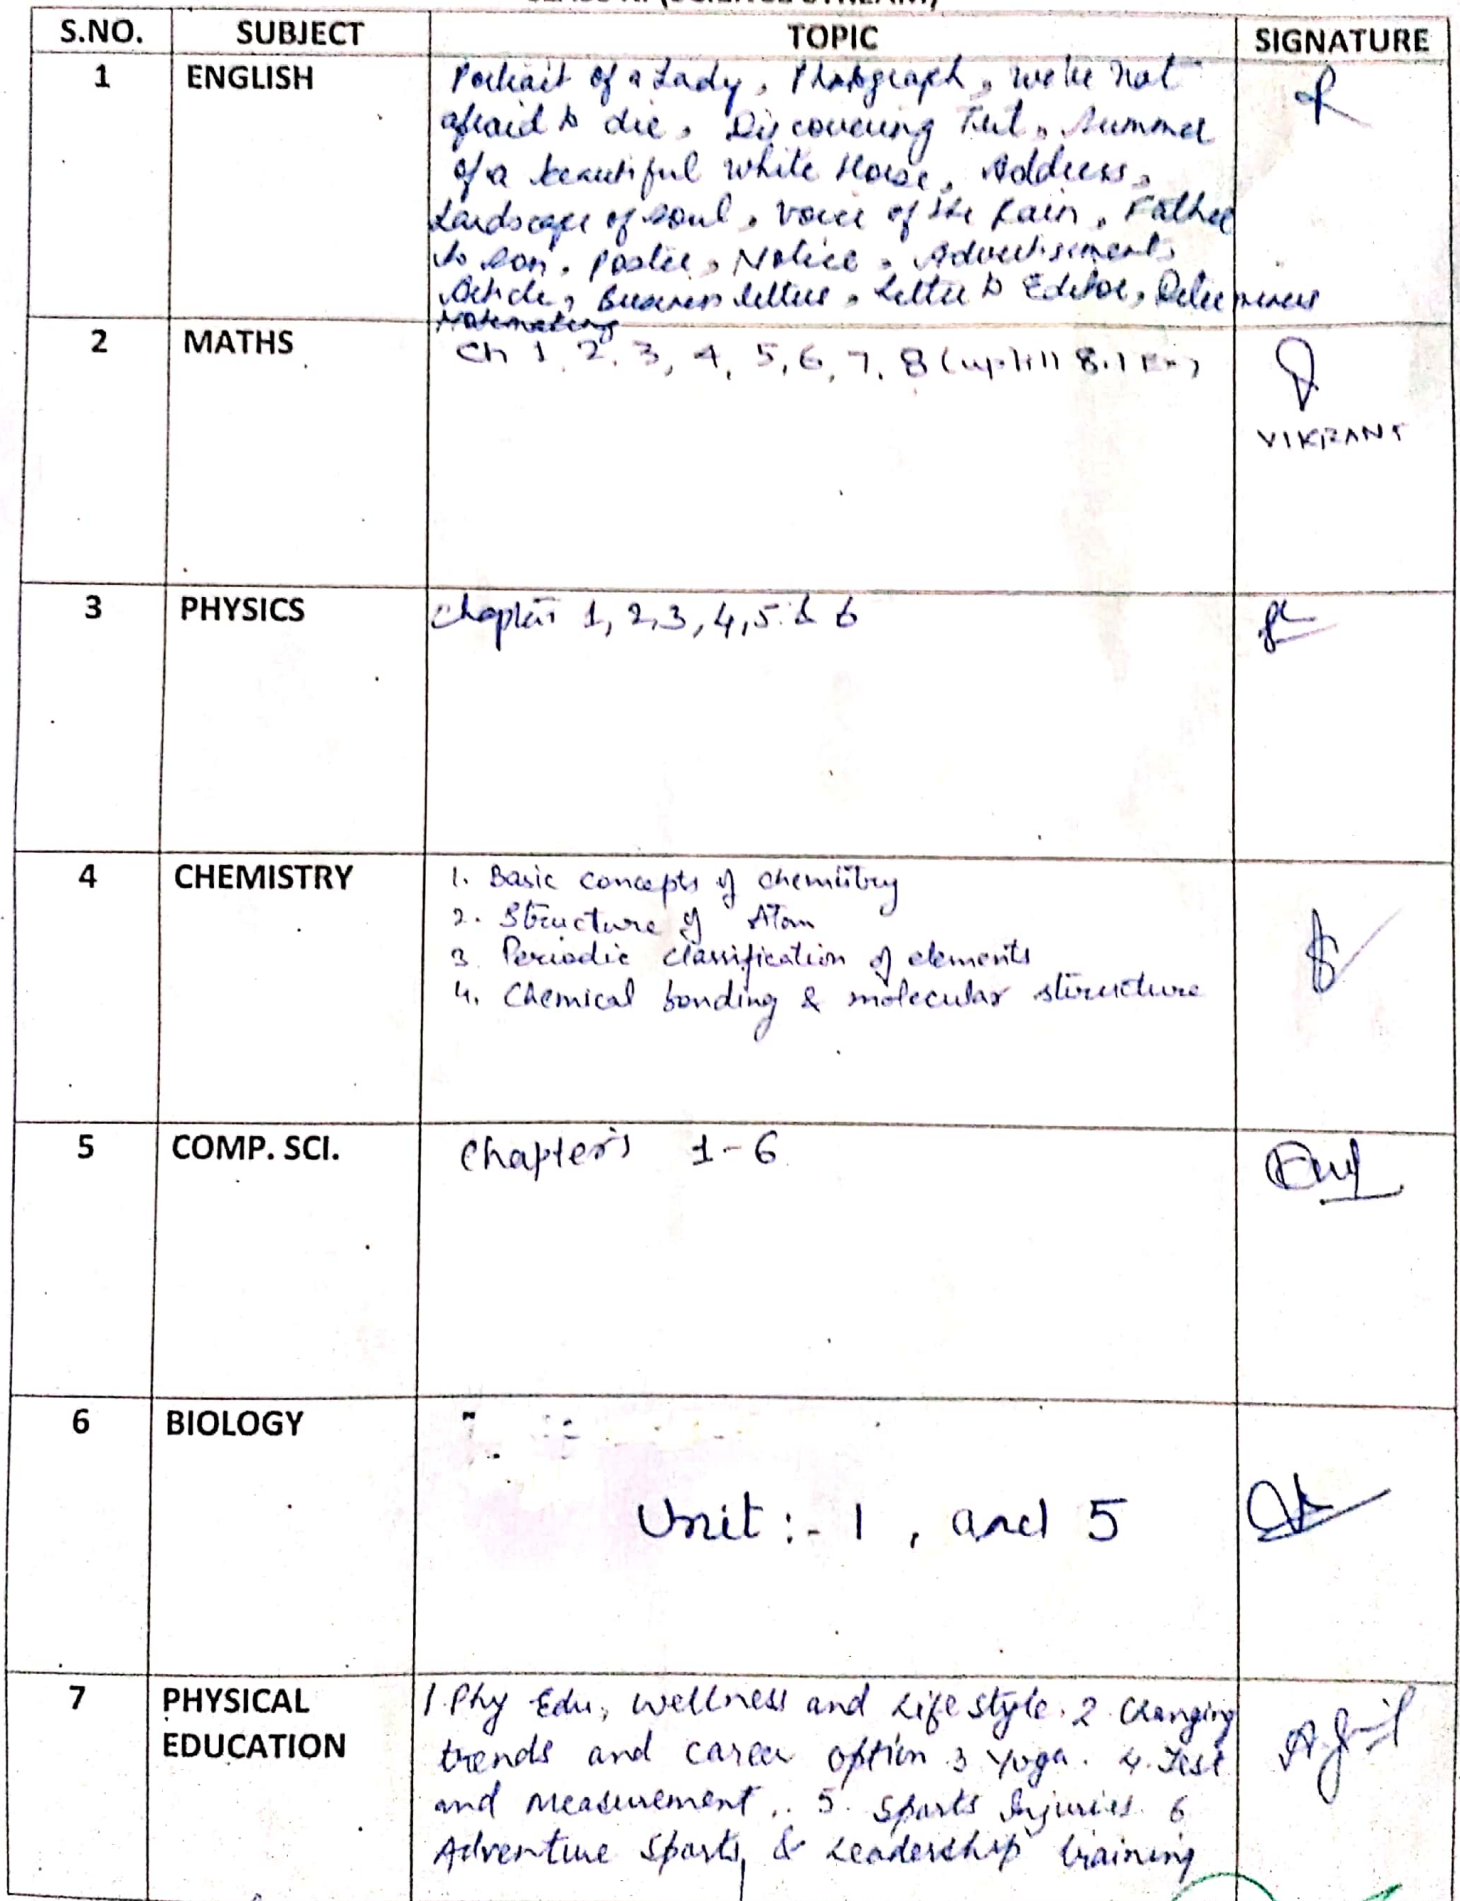 S.NO. SUBJECT TOPIC SIGNATURE
1 ENGLISH Portrait of a Lady, Photograph, We're not
afraid to die, Discovering Tut, Summer
of a beautiful White Horse, Address,
Landscape of soul, Voice of the Rain, Father
to son, Poster, Notice, Advertisement,
Article, Business letters, Letter to Editor, Determiners
Notemaking
2 MATHS Ch 1, 2, 3, 4, 5, 6, 7, 8 (uptill 8.1 Ex)
VIKRANT
3 PHYSICS Chapter 1, 2, 3, 4, 5 & 6
4 CHEMISTRY 1. Basic concepts of chemistry
2. Structure of Atom
3. Periodic classification of elements
4. Chemical bonding & molecular structure
5 COMP. SCI. Chapters 1-6
6 BIOLOGY
Unit :- 1, and 5
7 PHYSICAL EDUCATION 1. Phy Edu, wellness and Life style. 2 Changing
trends and career option 3 Yoga. 4. Test
and measurement.. 5. Sports Injuries. 6
Adventure Sports, & Leadership training